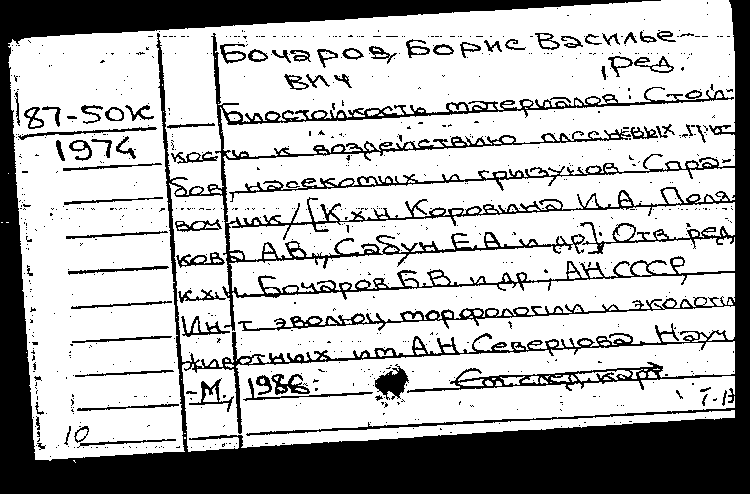 Бочаров, Борис Василье-
вич , ред.
87-50К
1974
Биостойкость материалов : Стой-
кость к воздействию плесневых гри-
бов, насекомых и грызунов : Спра-
вочник / [К.х.н. Коровина И.А., Поля-
кова А.В., Сабун Е.А. и др.]; Отв. ред.
к.х.н. Бочаров Б.В. и др ; АН СССР,
Ин-т эволюц. морфологии и экологи
животных им. А.Н. Северцова. Науч
-М., 1986.
См. след. карт.
10